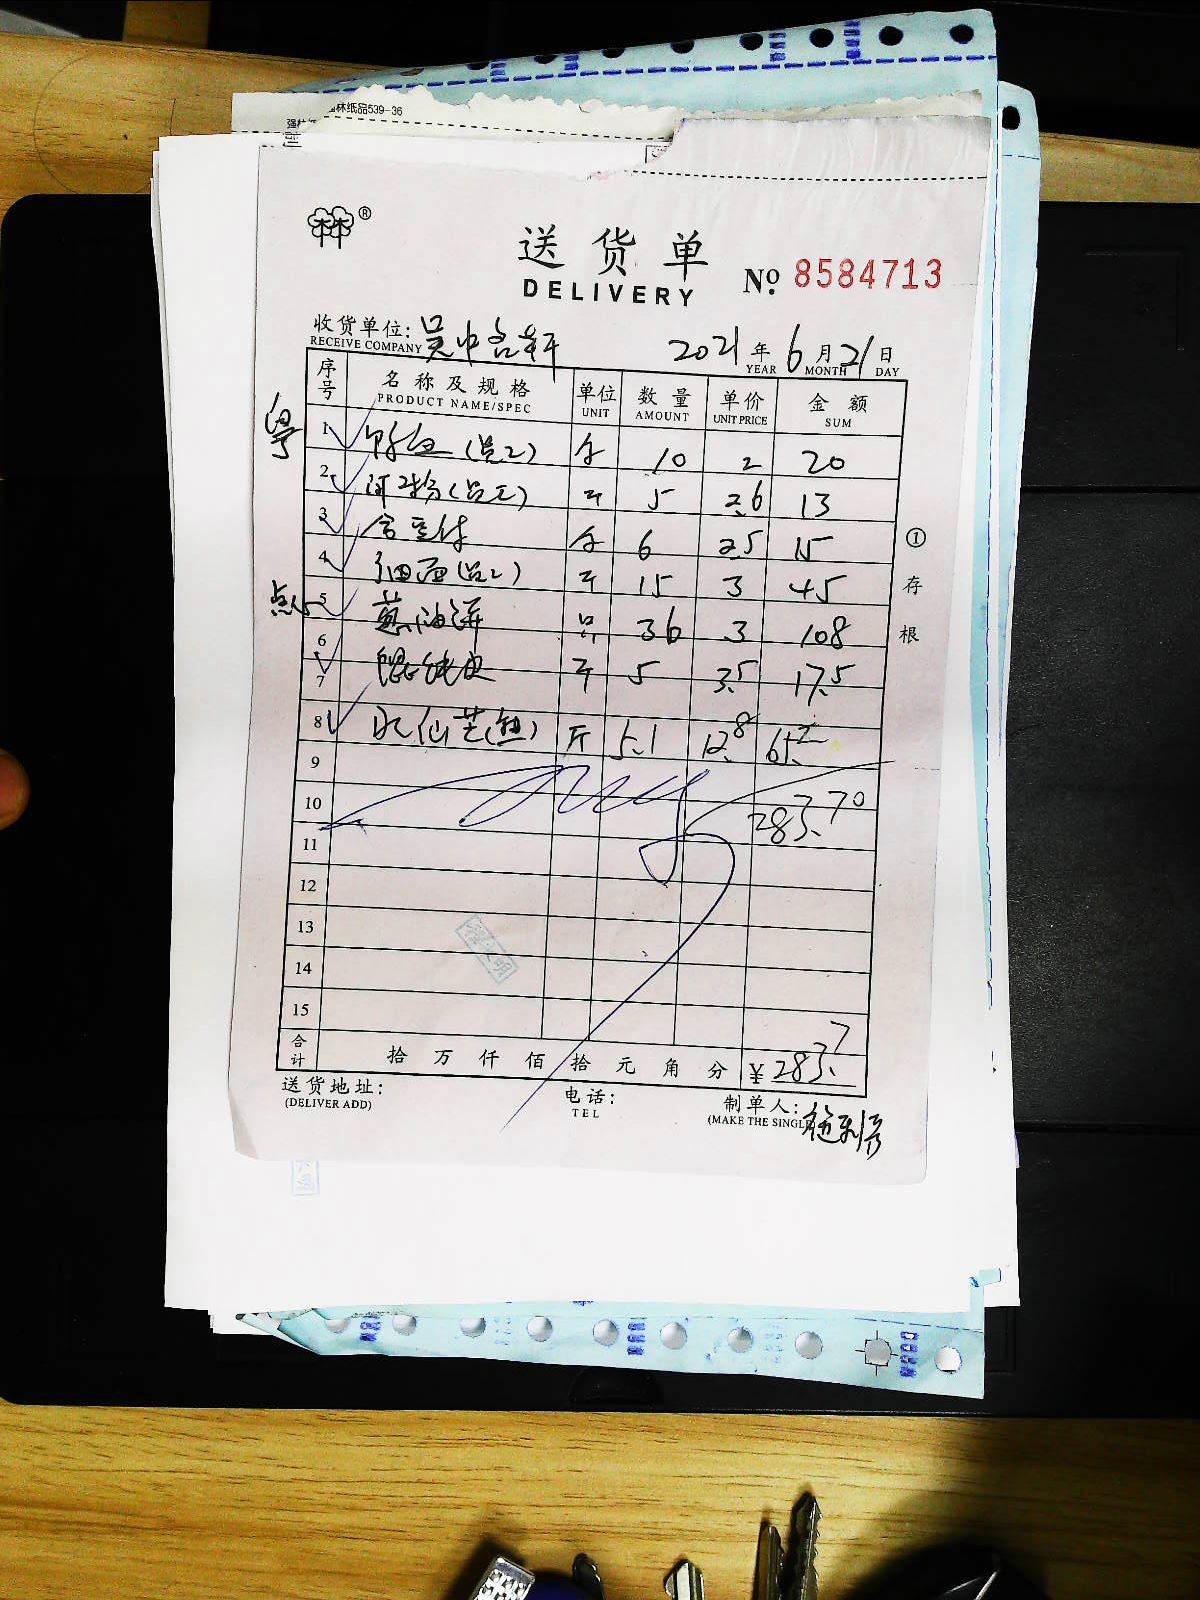 林纸品539-36
®
送货单
DELIVERY
№ 8584713
收货单位: 吴中
RECEIVE COMPANY
2021 年 6 月 21 日
YEAR MONTH DAY
序号 名称及规格 单位 数量 单价 金额
PRODUCT NAME/SPEC UNIT AMOUNT UNIT PRICE SUM
1 (员工) 10 2 20
2 (员工) 斤 5 2.6 13
3 6 2.5 15
4 细面(员工) 斤 15 3 45
点心 5 葱油饼 只 36 3 108
6 馄饨皮 斤 5 3.5 17.5
7
8 水仙芒(熟) 斤 5.1 12.8 65.2
9
10 283.70
11
12
13
14
15
合计 拾 万 仟 佰 拾 元 角 分 ¥ 283.7
①存根
送货地址:
(DELIVER ADD)
电话:
TEL
制单人:
(MAKE THE SINGL